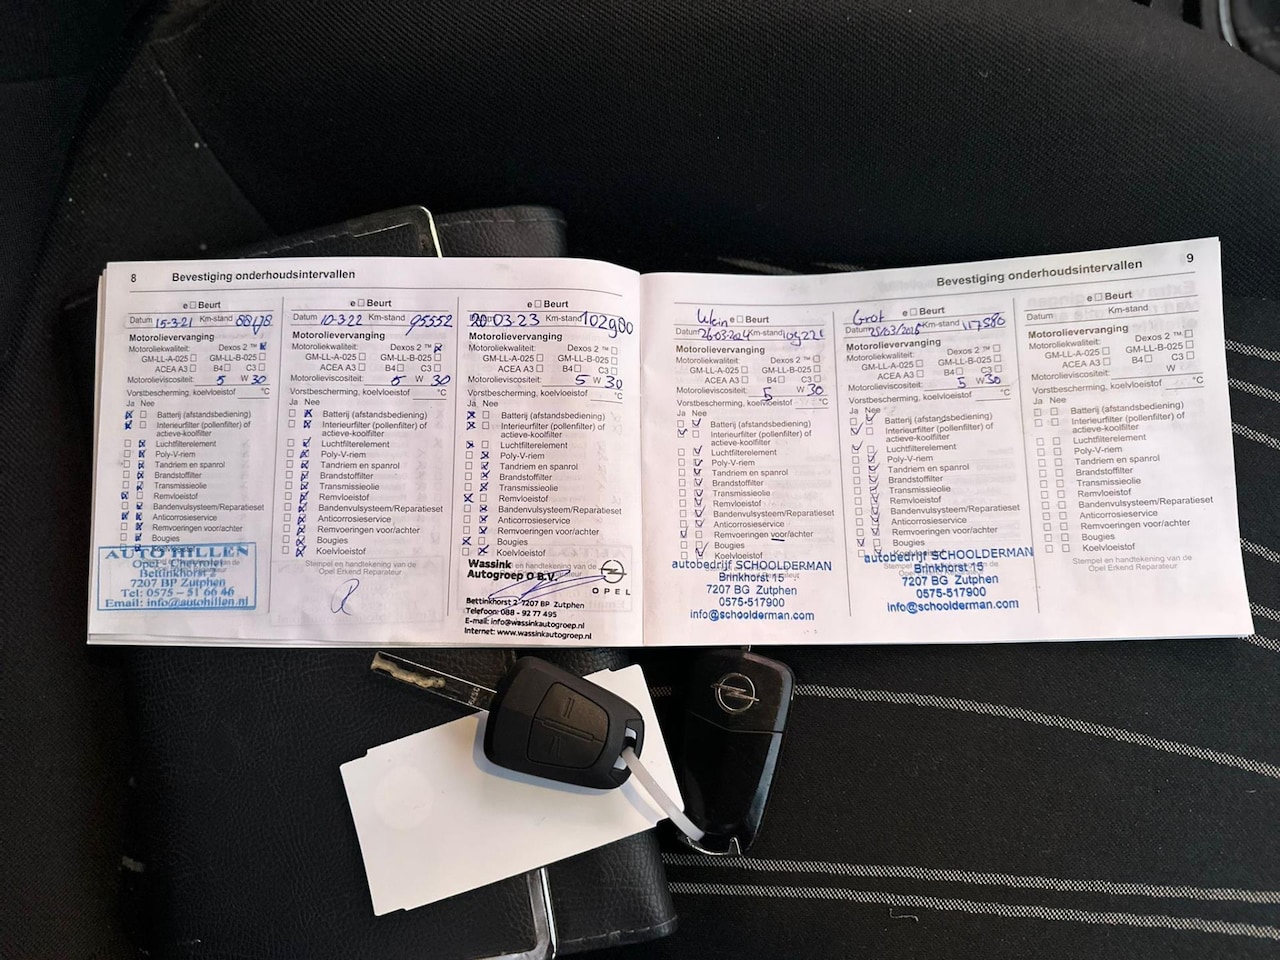 8 Bevestiging onderhoudsintervallen
e ☐ Beurt
Datum 15-3-21 Km-stand 88178
Motorolievervanging
Motoroliekwaliteit: Dexos 2 ™ ☒
GM-LL-A-025 ☐ GM-LL-B-025 ☐
ACEA A3 ☐ B4 ☐ C3 ☐
Motorolieviscositeit: 5 W 30
Vorstbescherming, koelvloeistof °C
Ja Nee
☒ ☐ Batterij (afstandsbediening)
☒ ☐ Interieurfilter (pollenfilter) of
actieve-koolfilter
☐ ☒ Luchtfilterelement
☐ ☒ Poly-V-riem
☐ ☒ Tandriem en spanrol
☐ ☒ Brandstoffilter
☐ ☒ Transmissieolie
☒ ☐ Remvloeistof
☐ ☒ Bandenvulsysteem/Reparatieset
☒ ☒ Anticorrosieservice
☐ ☒ Remvoeringen voor/achter
☐ ☒ Bougies
Koelvloeistof
AUTO HILLEN
Opel - Chevrolet
Bettinkhorst 2
7207 BP Zutphen
Tel: 0575 - 51 66 46
Email: info@autohillen.nl
e ☐ Beurt
Datum 10-3-22 Km-stand 95552
Motorolievervanging
Motoroliekwaliteit: Dexos 2 ™ ☒
GM-LL-A-025 ☐ GM-LL-B-025 ☐
ACEA A3 ☐ B4 ☐ C3 ☐
Motorolieviscositeit: 5 W 30
Vorstbescherming, koelvloeistof °C
Ja Nee
☐ ☒ Batterij (afstandsbediening)
☐ ☒ Interieurfilter (pollenfilter) of
actieve-koolfilter
☐ ☒ Luchtfilterelement
☐ ☒ Poly-V-riem
☐ ☒ Tandriem en spanrol
☐ ☒ Brandstoffilter
☐ ☒ Transmissieolie
☐ ☒ Remvloeistof
☐ ☒ Bandenvulsysteem/Reparatieset
☐ ☒ Anticorrosieservice
☐ ☒ Remvoeringen voor/achter
☐ ☒ Bougies
☐ ☒ Koelvloeistof
Stempel en handtekening van de
Opel Erkend Reparateur
e ☐ Beurt
20-03-23 Km-stand 102980
Motorolievervanging
Motoroliekwaliteit: Dexos 2 ™ ☐
GM-LL-A-025 ☐ GM-LL-B-025 ☐
ACEA A3 ☐ B4 ☐ C3 ☐
Motorolieviscositeit: 5 W 30
Vorstbescherming, koelvloeistof °C
Ja Nee
☒ ☐ Batterij (afstandsbediening)
☒ ☐ Interieurfilter (pollenfilter) of
actieve-koolfilter
☒ ☐ Luchtfilterelement
☐ ☒ Poly-V-riem
☐ ☒ Tandriem en spanrol
☐ ☒ Brandstoffilter
☐ ☒ Transmissieolie
☒ ☐ Remvloeistof
☐ ☒ Bandenvulsysteem/Reparatieset
☐ ☒ Anticorrosieservice
☐ ☒ Remvoeringen voor/achter
☒ ☐ Bougies
☐ ☒ Koelvloeistof
Wassink
Autogroep O B.V.
OPEL
Bettinkhorst 2 7207 BP Zutphen
Telefoon: 088 - 92 77 495
E-mail: info@wassinkautogroep.nl
Internet: www.wassinkautogroep.nl
Bevestiging onderhoudsintervallen 9
Klein e ☐ Beurt
Datum 26-03-2024 Km-stand
Motorolievervanging
Motoroliekwaliteit: Dexos 2 ™ ☐
GM-LL-A-025 ☐ GM-LL-B-025 ☐
ACEA A3 ☐ B4 ☐ C3 ☐
Motorolieviscositeit: 5 W 30
Vorstbescherming, koelvloeistof °C
Ja Nee
☐ ☑ Batterij (afstandsbediening)
☑ ☐ Interieurfilter (pollenfilter) of
actieve-koolfilter
☐ ☑ Luchtfilterelement
☐ ☑ Poly-V-riem
☐ ☑ Tandriem en spanrol
☐ ☑ Brandstoffilter
☐ ☑ Transmissieolie
☐ ☑ Remvloeistof
☐ ☑ Bandenvulsysteem/Reparatieset
☐ ☑ Anticorrosieservice
☑ ☐ Remvoeringen voor/achter
☐ Bougies
☐ ☑ Koelvloeistof
autobedrijf SCHOOLDERMAN
Brinkhorst 15
7207 BG Zutphen
0575-517900
info@schoolderman.com
Grot e ☐ Beurt
Datum Km-stand 117580
Motorolievervanging
Motoroliekwaliteit: Dexos 2 ™ ☐
GM-LL-A-025 ☐ GM-LL-B-025 ☐
ACEA A3 ☐ B4 ☐ C3 ☐
Motorolieviscositeit: 5 W 30
Vorstbescherming, koelvloeistof °C
Ja Nee
☐ ☑ Batterij (afstandsbediening)
☑ ☐ Interieurfilter (pollenfilter) of
actieve-koolfilter
☑ ☐ Luchtfilterelement
☐ ☑ Poly-V-riem
☐ ☑ Tandriem en spanrol
☐ ☑ Brandstoffilter
☐ ☑ Transmissieolie
☐ ☑ Remvloeistof
☐ ☑ Bandenvulsysteem/Reparatieset
☐ ☑ Anticorrosieservice
☐ ☑ Remvoeringen voor/achter
☑ ☐ Bougies
autobedrijf SCHOOLDERMAN
Brinkhorst 15
7207 BG Zutphen
0575-517900
info@schoolderman.com
e ☐ Beurt
Datum Km-stand
Motorolievervanging
Motoroliekwaliteit: Dexos 2 ™ ☐
GM-LL-A-025 ☐ GM-LL-B-025 ☐
ACEA A3 ☐ B4 ☐ C3 ☐
Motorolieviscositeit: W
Vorstbescherming, koelvloeistof °C
Ja Nee
☐ ☐ Batterij (afstandsbediening)
☐ ☐ Interieurfilter (pollenfilter) of
actieve-koolfilter
☐ ☐ Luchtfilterelement
☐ ☐ Poly-V-riem
☐ ☐ Tandriem en spanrol
☐ ☐ Brandstoffilter
☐ ☐ Transmissieolie
☐ ☐ Remvloeistof
☐ ☐ Bandenvulsysteem/Reparatieset
☐ ☐ Anticorrosieservice
☐ ☐ Remvoeringen voor/achter
☐ ☐ Bougies
☐ ☐ Koelvloeistof
Stempel en handtekening van de
Opel Erkend Reparateur